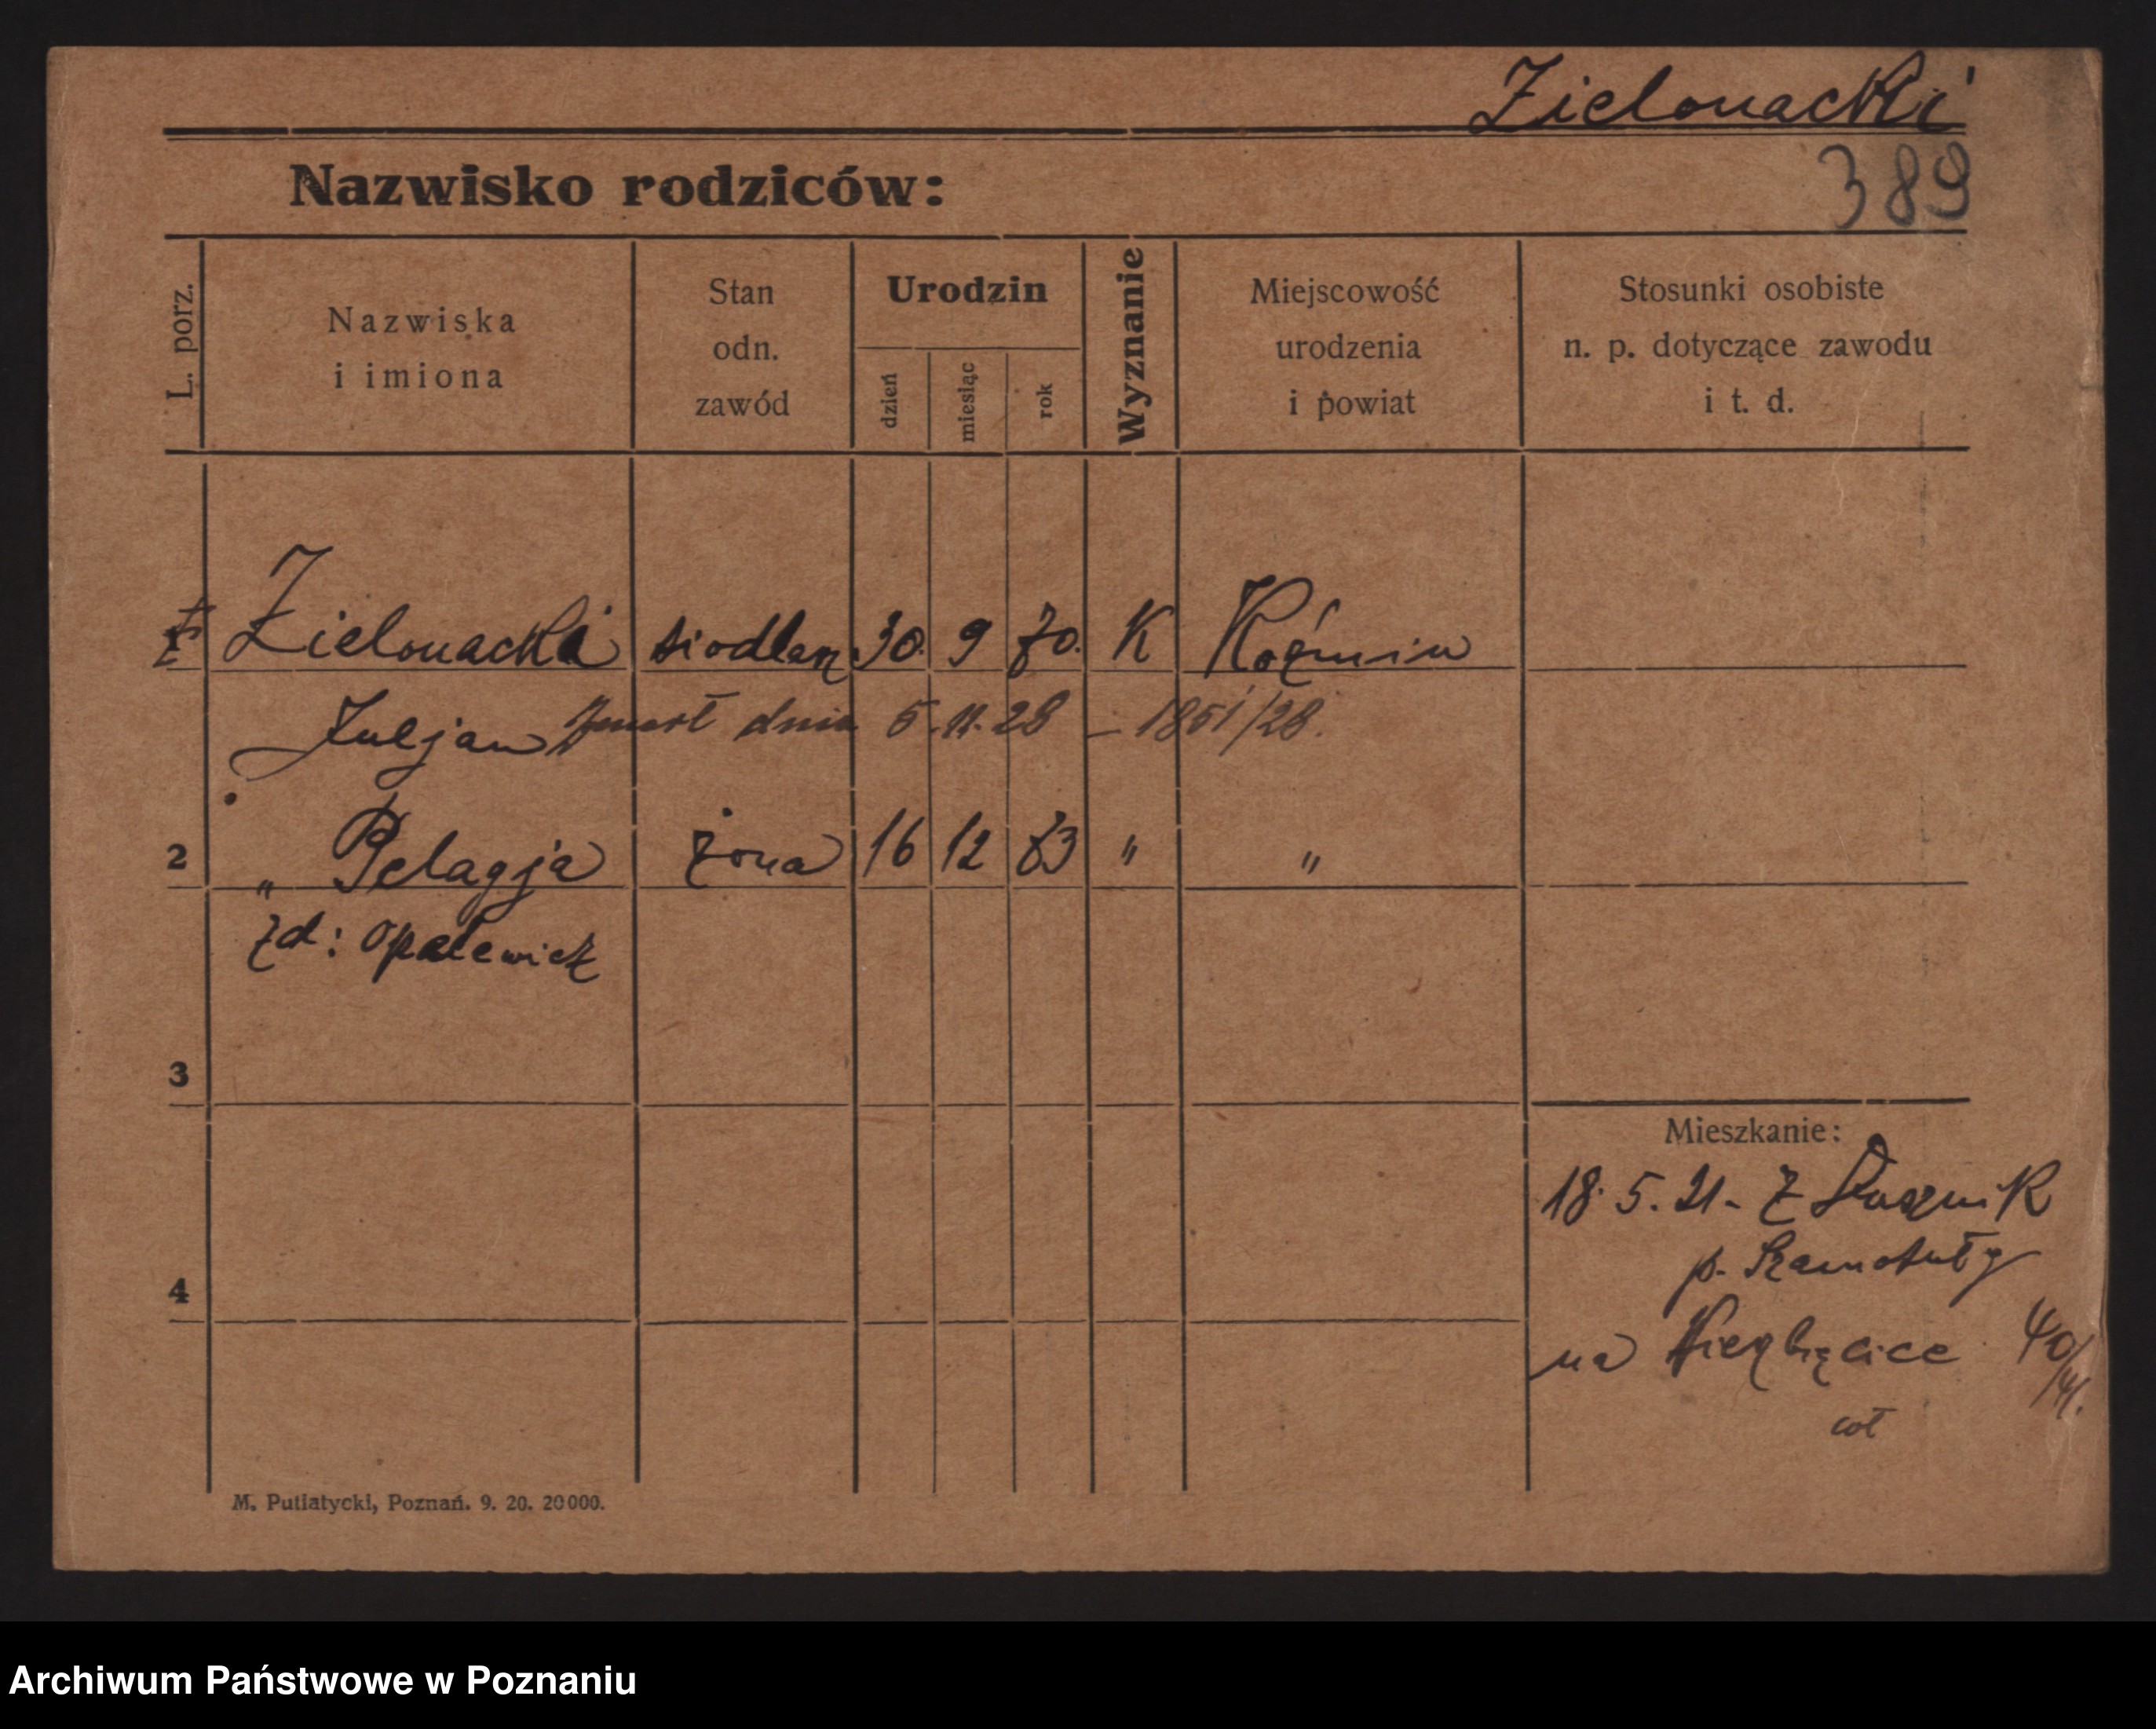 Zielonacki
389
Nazwisko rodziców:
L. porz.
Nazwiska
i imiona
Stan
odn.
zawód
Urodzin
dzień
miesiąc
rok
Wyznanie
Miejscowość
urodzenia
i powiat
Stosunki osobiste
n. p. dotyczące zawodu
i t. d.
Zielonacki siodlarz 30. 9 70. K Koźmin
Juljan Zmarł dnia 5.11.28 – 1851/28.
2 „ Pelagja żona 16 12 73 " "
zd: Opalewicz
3
Mieszkanie:
18. 5. 21. z Dusznik
4
p. Szamotuły
na Wierzbięcice 40/41.
M. Putiatycki, Poznań. 9. 20. 20000.
Archiwum Państwowe w Poznaniu